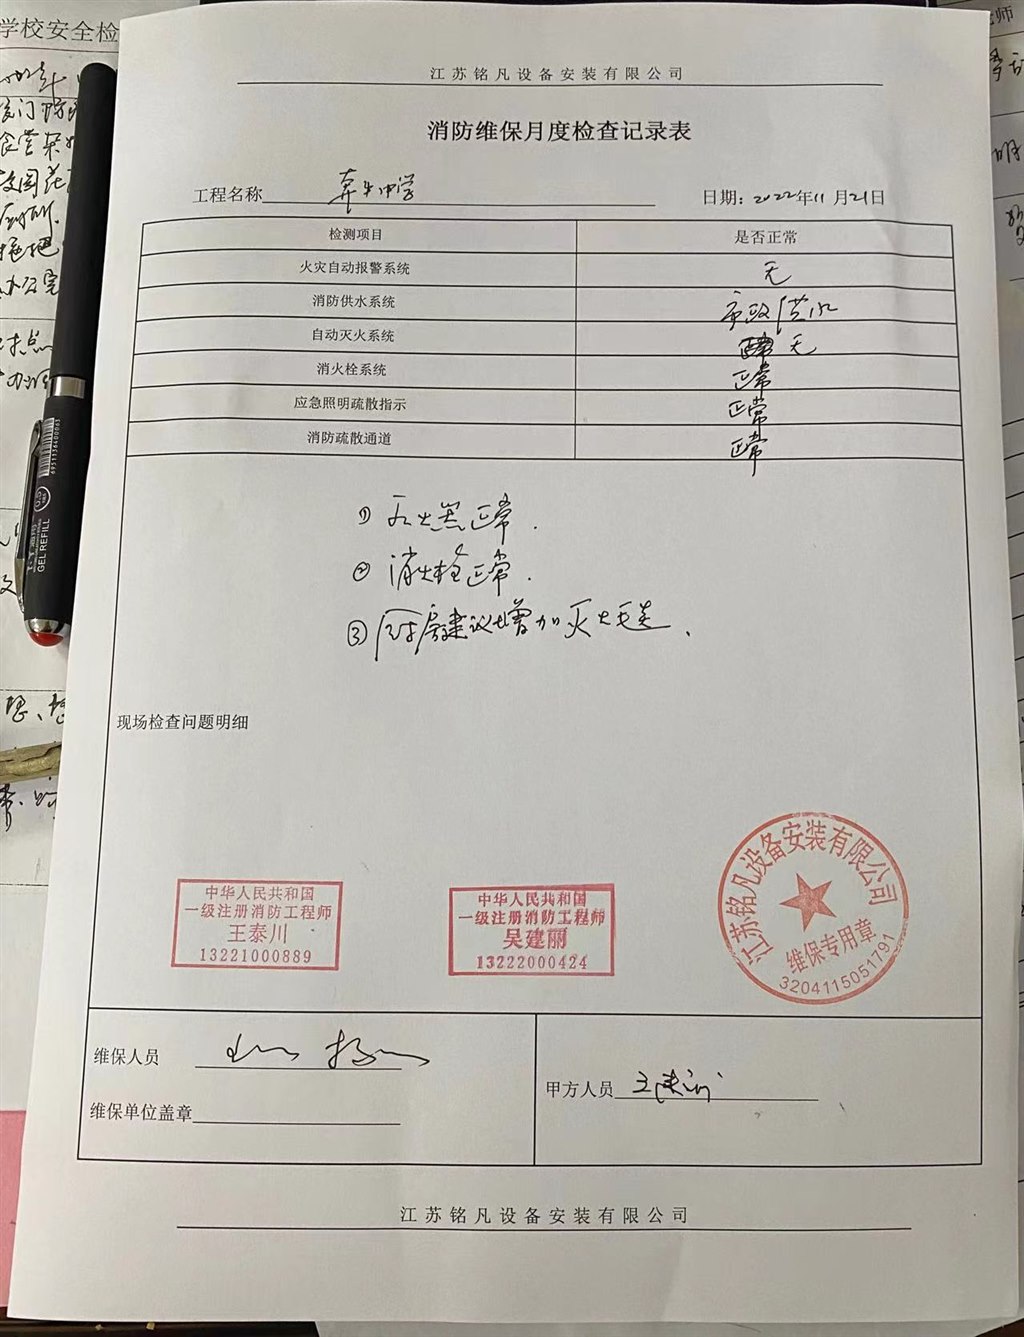 江苏铭凡设备安装有限公司
消防维保月度检查记录表
工程名称 奔牛中学 日期：2022年11月21日
检测项目 是否正常
火灾自动报警系统 无
消防供水系统 市政供水
自动灭火系统 无
消火栓系统 正常
应急照明疏散指示 正常
消防疏散通道 正常
① 灭火器正常.
② 消火栓正常.
③ 厨房建议增加灭火毯.
现场检查问题明细
中华人民共和国
一级注册消防工程师
王泰川
13221000889
中华人民共和国
一级注册消防工程师
吴建丽
13222000424
江苏铭凡设备安装有限公司
维保专用章
3204115051791
维保人员
甲方人员
维保单位盖章
江苏铭凡设备安装有限公司
学校安全检
GEL REFILL
6951356400063